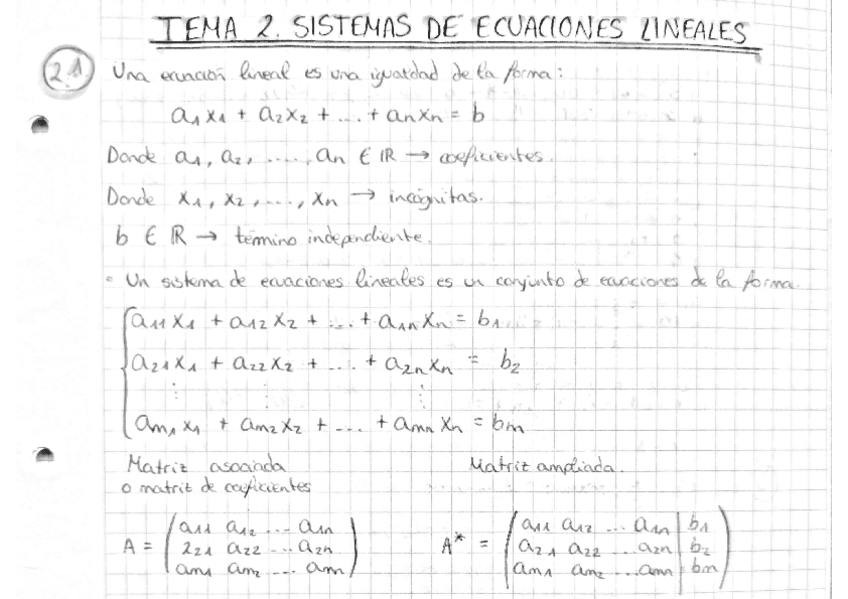 TEMA 2. SISTEMAS DE ECUACIONES LINEALES
2.1 Una ecuación lineal es una igualdad de la forma:
a₁x₁ + a₂x₂ + ... + anxn = b
Donde a₁, a₂, ...., an ∈ ℝ → coeficientes.
Donde x₁, x₂, ..., xn → incógnitas.
b ∈ ℝ → término independiente.
- Un sistema de ecuaciones lineales es un conjunto de ecuaciones de la forma.
a₁₁x₁ + a₁₂x₂ + ... + a₁nxn = b₁
a₂₁x₁ + a₂₂x₂ + ... + a₂nxn = b₂
⋮ ⋮ ⋮
am₁x₁ + am₂x₂ + ... + amnxn = bm
Matriz asociada Matriz ampliada.
o matriz de coeficientes
A = ( a₁₁ a₁₂ ... a₁n A* = ( a₁₁ a₁₂ ... a₁n | b₁
2₂₁ a₂₂ ... a₂n a₂₁ a₂₂ ... a₂n | b₂
am₁ am₂ ... amn ) am₁ am₂ ... amn | bm )